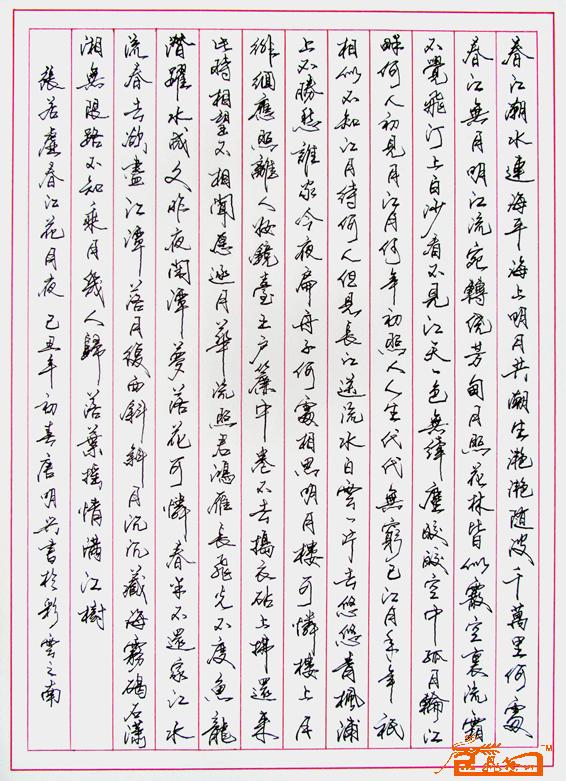 春江潮水連海平海上明月共潮生灔灔随波千萬里何處
春江無月明江流宛轉繞芳甸月照花林皆似霰空裏流霜
不覺飛汀上白沙看不見江天一色無纖塵皎皎空中孤月輪江
畔何人初見月江月何年初照人人生代代無窮已江月年年祇
相似不知江月待何人但見長江送流水白雲一片去悠悠青楓浦
上不勝愁誰家今夜扁舟子何處相思明月樓可憐樓上月
徘徊應照離人妝鏡臺玉户簾中卷不去搗衣砧上拂還來
此時相望不相聞應逐月華流照君鴻雁長飛光不度魚龍
潛躍水成文昨夜閒潭夢落花可憐春半不還家江水
流春去欲盡江潭落月復西斜斜月沉沉藏海霧碣石瀟
湘無限路不知乘月幾人歸落葉摇情滿江樹
張若虛春江花月夜己丑年初春唐明興書於彩雲之南